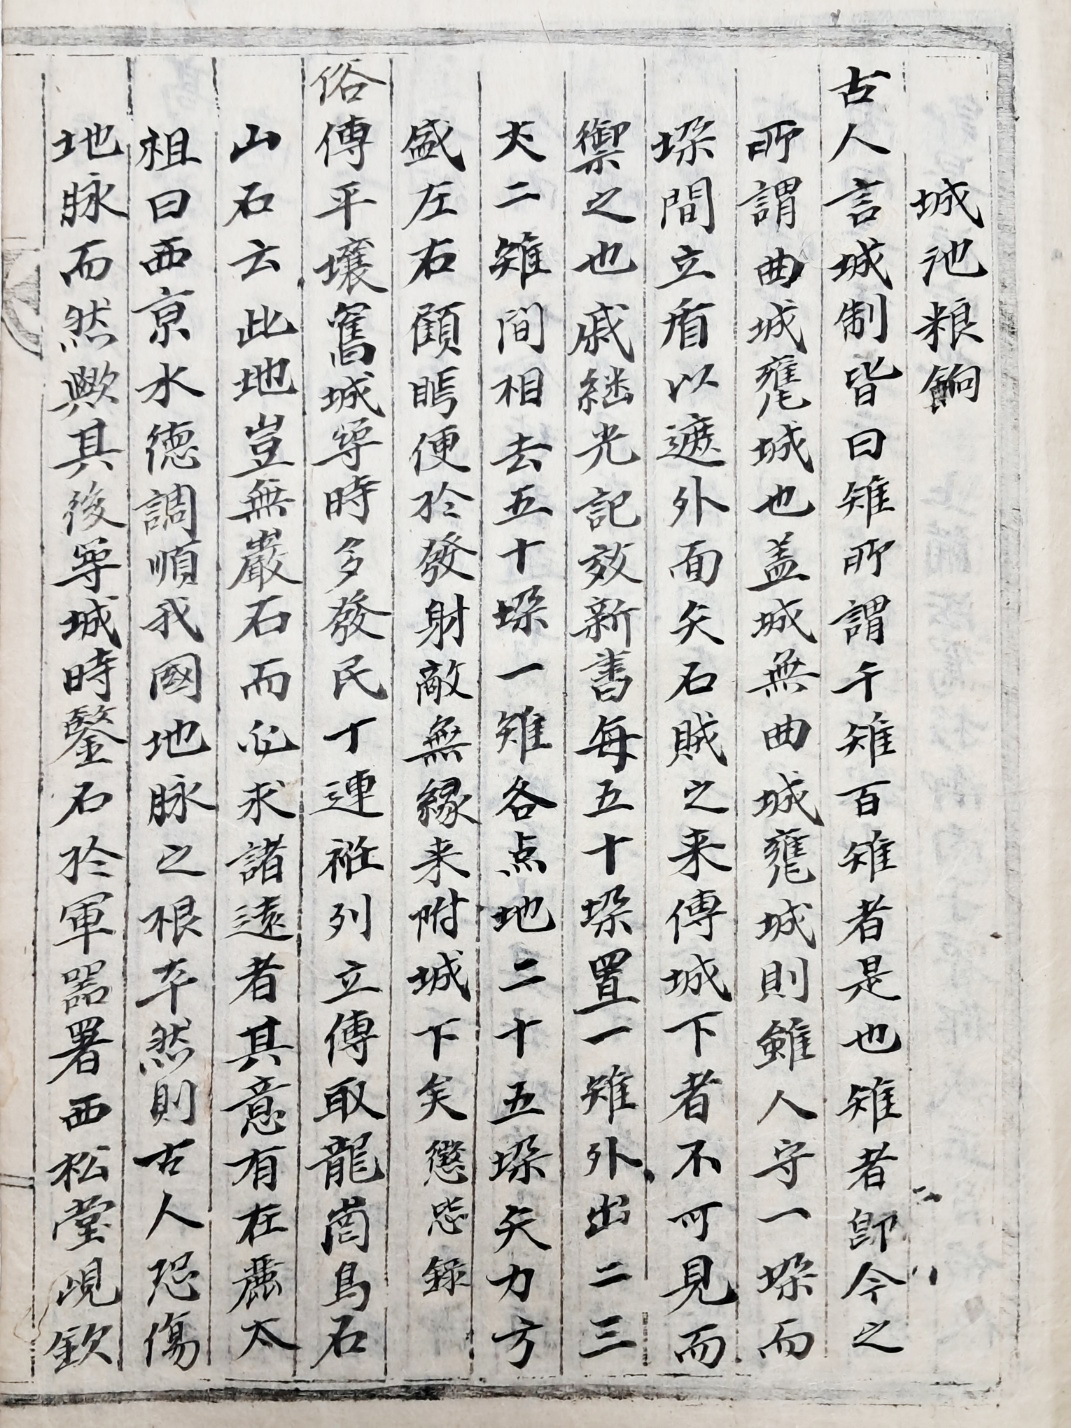 城池粮餉
古人言城制皆曰雉所謂千雉百雉者是也雉者即今之
所謂曲城甕城也盖城無曲城甕城則雖人守一垜而
垜間立盾以遮外面矢石賊之来傳城下者不可見而
禦之也戚継光記效新書每五十垜置一雉外出二三
丈二雉間相去五十垜一雉各点地二十五垜矢力方
盛左右顧眄便於發射敵無縁来附城下矣 懲毖錄
俗傳平壤舊城築時多發民丁連袵列立傳取龍崗烏石
山石云此地豈無巖石而必求諸遠者其意有在麗太
祖曰西京水德調順我國地脉之根本然則古人恐傷
地脉而然歟其後築城時鑿石於軍器署西松堂峴欽